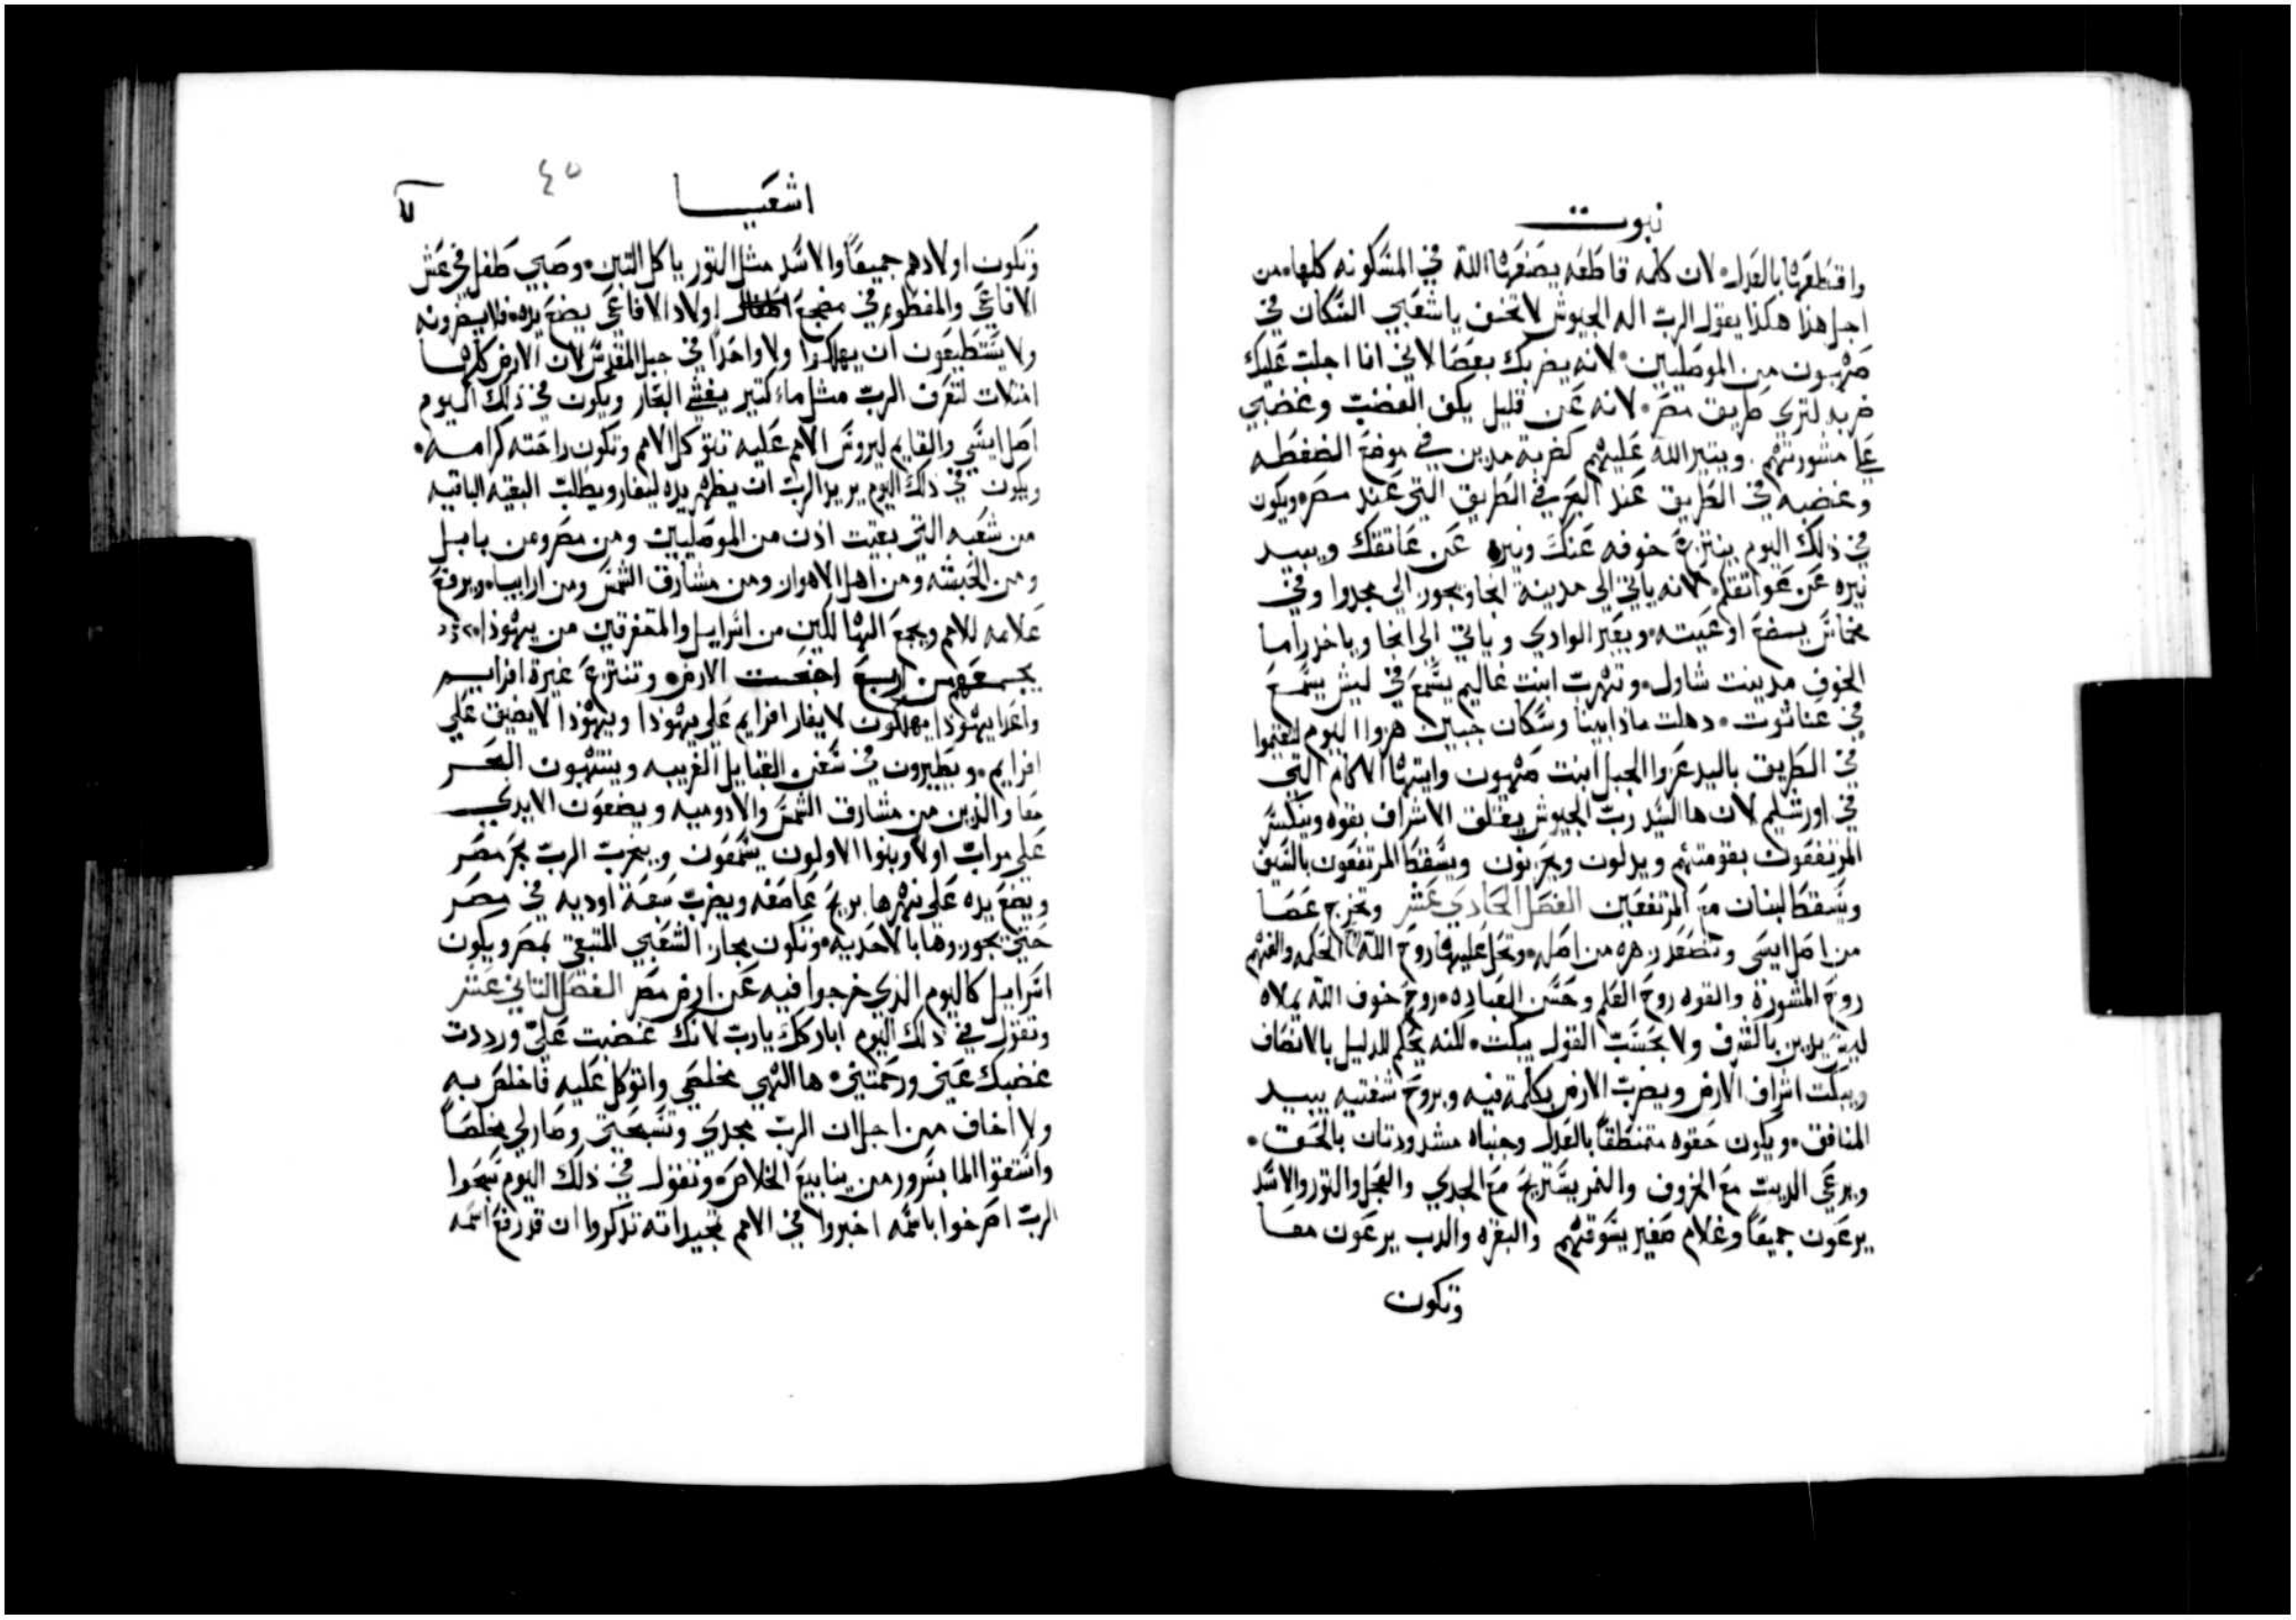 نبوت
واقتطعها بالعدل لان كلمه قاطعه يصنعها الله في المسكونه كلها من
اجل هذا هكذا يقول الرب اله الجيوش لا تخف يا شعبي السكان في
صهيون من الموصليين لانه يضربك بعصا لاني انا اجلبت عليك
ضربه لتري طريق مصر لانه عن قليل يكف الغضب وغضبي
على مشورتهم ويثير الله عليهم كضربة مدين في موضع الضغطه
وغضبه في الطريق عند البحر في الطريق التي عند مصر ويكون
في ذلك اليوم ينتزع خوفه عنك ونيره عن عاتقك ويبيد
نيره عن عواتقكم لانه ياتي الى مدينة انجا ويجوز الى مجدوا وفي
مخماش يضع اوعيته ويعبر الوادي وياتي الى انجا وياخد راما
الخوف مدينت شاول وتهرب ابنت غاليم يسمع في ليش يسمع
في عناتوت دهلت مادابينا وسكان جيبين هروا اليوم ليقيموا
في الطريق باليد عزوا الجبل ابنت صهيون وايتها الاكام التي
في اورشليم لان ها السيد رب الجيوش يقلق الاشراف بقوه وينكسر
المرتفعون بقومتهم ويدلون ويحزنون ويسقط المرتفعون بالسيف
ويسقط لبنان مع المرتفعين الفصل الحادي عشر وتخرج عصا
من اصل ايسى وتصعد زهره من اصله وتحل عليها روح الله الحكمه والفهم
روح المشورة والقوه روح العلم وحسن العباده روح خوف الله يملاه
ليس يدين بالشرف ولا بحسب القول يبكت لكنه يحكم للدليل بالانصاف
ويبكت اشراف الارض ويضرب الارض بكلمة فيه وبروح شفتيه يبيد
المنافق ويكون حقوه متمنطقاً بالعدل وجنباه مشدودتان بالحق
ويرعى الديب مع الخروف والنمر يستريح مع الجدي والعجل والتور والاسد
يرعون جميعاً وغلام صغير يسوقهم والبقره والدب يرعون معاً
وتكون
اشعيا
٤٥
وتكون اولادهم جميعاً والاسد مثل التور ياكل التبن وصبي طفل في عش
الافاعي والمفطوم في مضجع اولاد الافاعي يضع يده فلا يضرونه
ولا يستطيعون ان يهلكوا ولا واحداً في جبل المقدس لان الارض كلها
امتلات لتعرف الرب مثل ماء كتير يغشي البحار ويكون في ذلك اليوم
اصل ايسي والقايم ليروس الامم عليه تتوكل الامم وتكون راحته كرامه
ويكون في ذلك اليوم يزيد الرب ان يظهر يده ليغار ويطلب البقيه الباقيه
من شعبه التي بقيت ادن من الموصليين ومن مصر ومن بابل
ومن الحبشه ومن اهل الاهواز ومن مشارق الشمس ومن ارابيا ويرفع
علامه للامم ويجمع الهالكين من اسرايل والمتفرقين من يهوذا
يجمعهم من اربع اجنحت الارض وتنتزع غيرة افرايم
واعدا يهوذا يهلكون لا يغار افرايم على يهوذا ويهوذا لا يضيق على
افرايم ويطيرون في سفن القبايل الغريبه وينتهبون البحر
معا والذين من مشارق الشمس والادوميه ويضعون الايدي
على مواب اولا وبنوا الاولون يسمعون ويخرب الرب بحر مصر
ويضع يده على نهرها بريح عاصفه ويضرب سبعة اوديه في مصر
حتى يجوزوها بالاحذيه وتكون مجاز الشعبي المتبقي بمصر ويكون
اسرايل كاليوم الذي خرجوا فيه عن ارض مصر الفصل التاني عشر
وتقول في ذلك اليوم اباركك يارب لانك غضبت علي ورددت
غضبك عني ورحمتني ها الهي مخلصي واتوكل عليه فاخلص به
ولا اخاف من اجل ان الرب مجدي وتسبحتي وصار لي مخلصاً
واستقوا الما بسرور من ينابيع الخلاص وتقول في ذلك اليوم سبحوا
الرب اصرخوا باسمه اخبروا في الامم تمجيداته تذكروا ان قد رفع اسمه